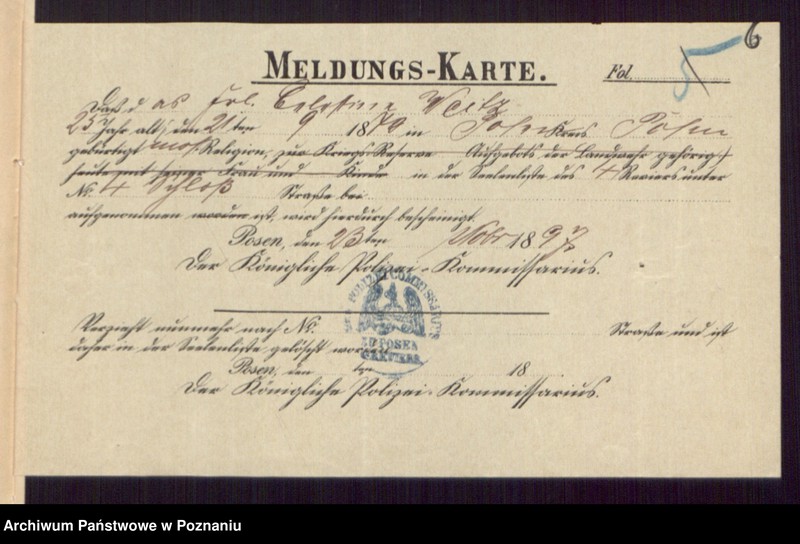 6
5
MELDUNGS-KARTE.
Fol.
Daß d as Frl. Celestine Weitz
25 Jahr alt, den 21ten 9 1870 in Posen Kreis Posen
gebürtigt mos. Religion, zur Kriegs-Reserve Aufgebots der Landwehr gehörig
heute mit seiner Frau und Kinder in der Seelenliste des 4 Reviers unter
No. 4 Schloß Straße bei
aufgenommen worden ist, wird hierdurch bescheinigt.
Posen, den 23ten 1897
Der Königliche Polizei-Kommissarius.
POLIZEI COMMISSARIUS
ZU POSEN
Verzieht nunmehr nach No. Straße und ist
daher in der Seelenliste gelöscht worden.
Posen, den ten 18
Der Königliche Polizei-Kommissarius.
Archiwum Państwowe w Poznaniu